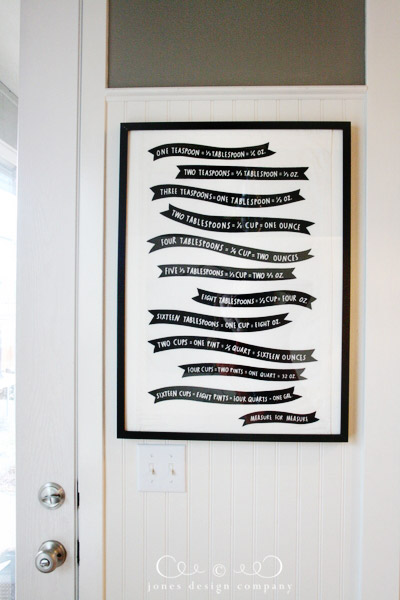 ONE TEASPOON = ⅓ TABLESPOON = ⅙ OZ.
TWO TEASPOONS = ⅔ TABLESPOON = ⅓ OZ.
THREE TEASPOONS = ONE TABLESPOON = ½ OZ.
TWO TABLESPOONS = ⅛ CUP = ONE OUNCE
FOUR TABLESPOONS = ¼ CUP = TWO OUNCES
FIVE ⅓ TABLESPOONS = ⅓ CUP = TWO ⅔ OZ.
EIGHT TABLESPOONS = ½ CUP = FOUR OZ.
SIXTEEN TABLESPOONS = ONE CUP = EIGHT OZ.
TWO CUPS = ONE PINT = ½ QUART = SIXTEEN OUNCES
FOUR CUPS = TWO PINTS = ONE QUART = 32 OZ.
SIXTEEN CUPS = EIGHT PINTS = FOUR QUARTS = ONE GAL
MEASURE FOR MEASURE
©
jones design company